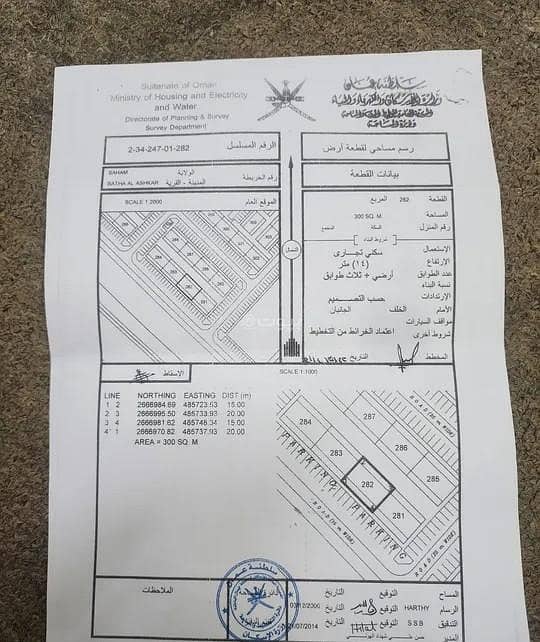 Sultanate of Oman
Ministry of Housing and Electricity
and Water
Directorate of Planning & Survey
Survey Department
2-34-247-01-282
الرقم المسلسل
رسم مساحي لقطعة أرض
SAHAM
الولاية
SATHA AL ASHKAR
المدينة - القرية
رقم الخريطة
بيانات القطعة
SCALE 1:2000
الموقع العام
القطعة 282 المربع
المساحة 300 SQ. M.
رقم المنزل السكة المجمع
شروط البناء
الاستعمال سكني تجاري
الارتفاع (١٤) متر
عدد الطوابق أرضي + ثلاث طوابق
نسبة البناء
الارتدادات حسب التصميم
الأمام الخلف الجانبان
مواقف السيارات
شروط أخرى اعتماد الخرائط من التخطيط
المخطط التاريخ
الشمال
SCALE 1:1000
الاسقاط
LINE NORTHING EASTING DIST (m)
1 2 2666984.69 485723.53 15.00
2 3 2666995.50 485733.93 20.00
3 4 2666981.62 485748.34 15.00
4 1 2666970.82 485737.93 20.00
AREA = 300 SQ. M.
287
284
286
283
285
282
281
PARKING PARKING
الملاحظات
سلطنة عمان
المساح التوقيع التاريخ
الرسام HARTHY التوقيع التاريخ 03/12/2000
التدقيق S.S.B التوقيع التاريخ
المدير